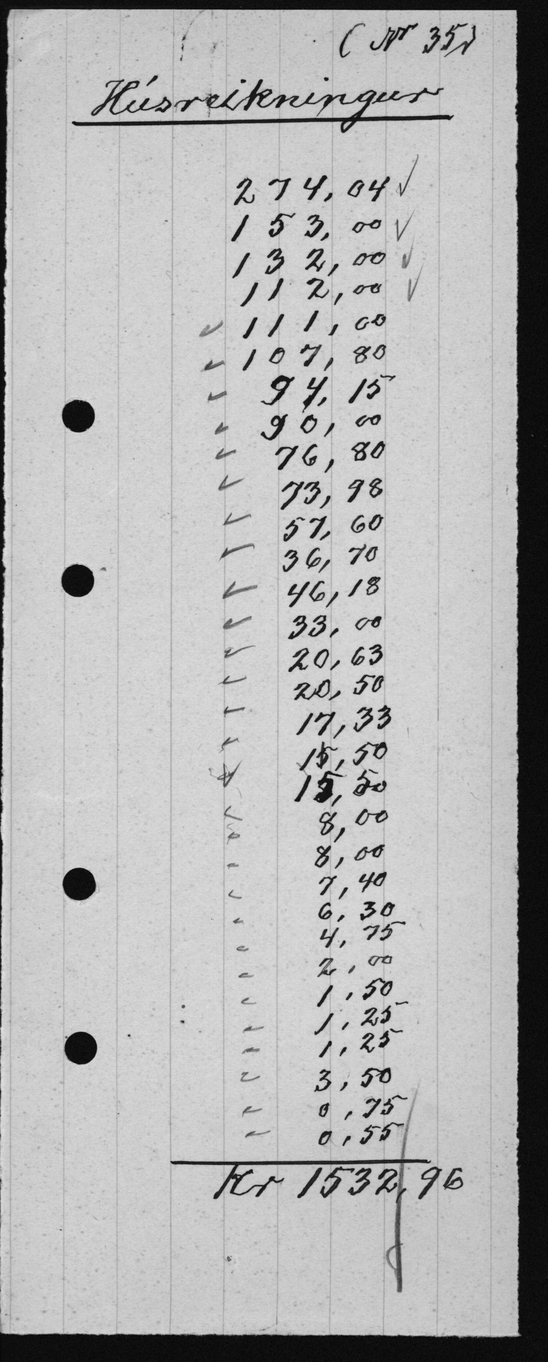 ( Nr 35)
Húsreikningur
274,04
153,00
132,00
112,00
111,00
107,80
94,15
90,00
76,80
73,98
57,60
36,70
46,18
33,00
20,63
20,50
17,33
15,50
15,50
8,00
8,00
7,40
6,30
4,75
2,00
1,50
1,25
1,25
3,50
0,75
0,55
Kr 1532,96